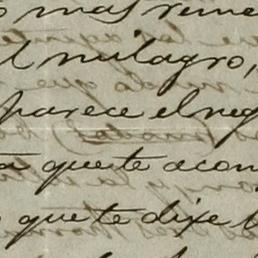 mas reme
l milagro,
parece el neg
a que te acon
que te dixe